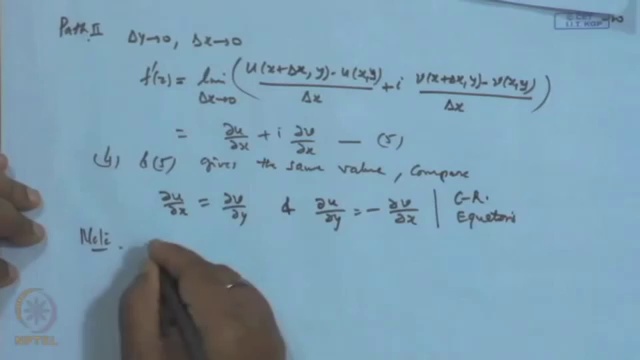 Path II Δy→0, Δx→0
f'(z) = lim Δx→0 ( u(x+Δx, y) - u(x,y) / Δx + i v(x+Δx, y) - v(x,y) / Δx )
= ∂u/∂x + i ∂v/∂x — (5)
(4) & (5) gives the same value, Compare
∂u/∂x = ∂v/∂y & ∂u/∂y = - ∂v/∂x | C-R. Equations
Note.
© CET
I.I.T. KGP
NPTEL